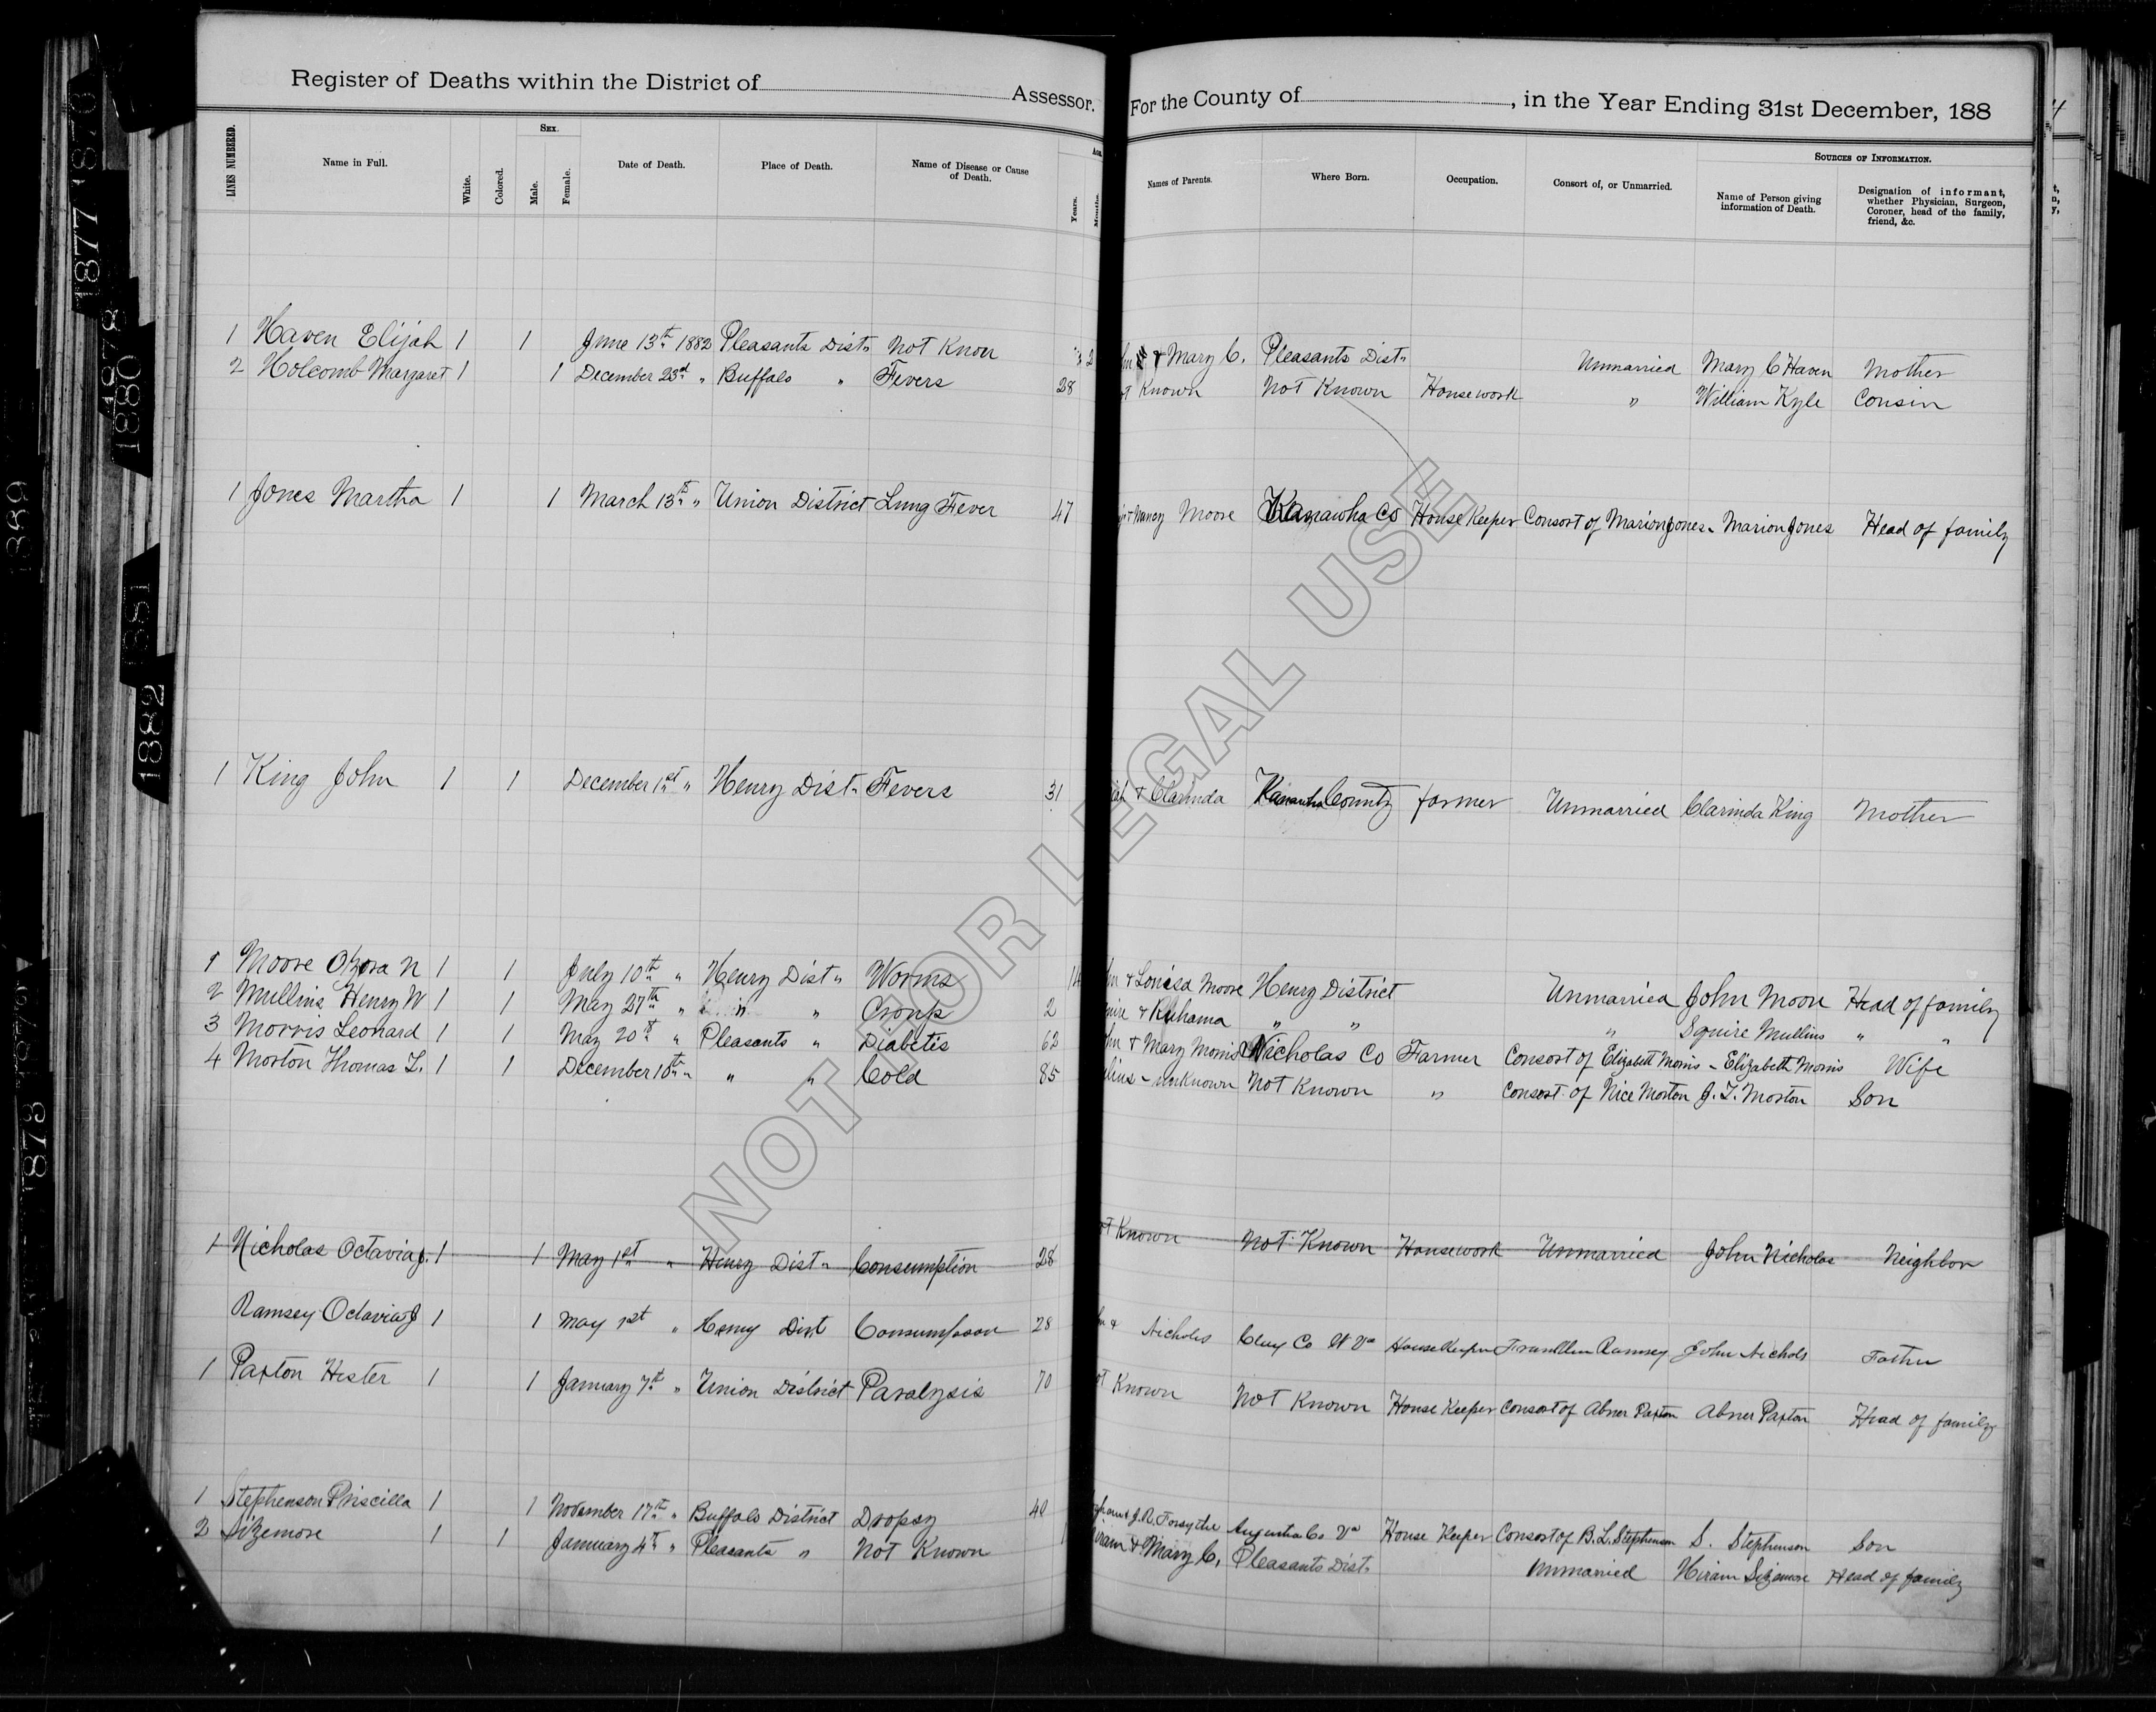 Register of Deaths within the District of Assessor. For the County of , in the Year Ending 31st December, 188
LINES NUMBERED. Name in Full. White. Colored. Sex. Male. Female. Date of Death. Place of Death. Name of Disease or Cause of Death. Years. Months. Names of Parents. Where Born. Occupation. Consort of, or Unmarried. Sources of Information. Name of Person giving information of Death. Designation of informant, whether Physician, Surgeon, Coroner, head of the family, friend, &c.
1 Haven Elijah 1 1 June 13th 1882 Pleasants Dist" Not Know & Mary C. Pleasants Dist" Unmarried Mary C Haven Mother
2 Holcomb Margaret 1 1 December 23d " Buffalo " Fevers 28 Known Not Known Housework " William Kyle Cousin
1 Jones Martha 1 1 March 13th " Union District Lung Fever 47 & Nancy Moore Kanawha Co House Keeper Consort of Marion Jones Marion Jones Head of family
1 King John 1 1 December 1st " Henry Dist" Fevers 31 & Clarinda Kanawha County farmer Unmarried Clarinda King Mother
1 Moore Okora N 1 1 July 10th " Henry Dist" Worms & Louisa Moore Henry District Unmarried John Moore Head of family
2 Mullins Henry W 1 1 May 27th " " " Croup 2 & Ruhama " " " Squire Mullins " "
3 Morris Leonard 1 1 May 20th " Pleasants " Diabetis 62 & Mary Morris Nicholas Co Farmer Consort of Elizabeth Morris Elizabeth Morris Wife
4 Morton Thomas L. 1 1 December 10th " " " Cold 85 unknown Not Known " Consort of Nice Morton J. T. Morton Son
1 Nicholas Octavia J. 1 1 May 1st " Henry Dist" Consumption 28 Known Not Known Housework Unmarried John Nicholas Neighbor
Ramsey Octavia J 1 1 May 1st " Henry Dist Consumpsoon 28 & Nichols Clay Co W Va House Keeper Franklin Ramsey John Nichols Father
1 Paxton Hester 1 1 January 7th " Union District Paralysis 70 Known Not Known House Keeper Consort of Abner Paxton Abner Paxton Head of family
1 Stephenson Priscilla 1 1 November 17th " Buffalo District Dropsy 40 & J.R. Forsythe Augusta Co Va House Keeper Consort of B. L. Stephenson S. Stephenson Son
2 Sizemore 1 1 January 4th " Pleasants " Not Known 1 & Mary C, Pleasants Dist" Unmarried Hiram Sizemore Head of family
1877
1878
1880
1881
1882
NOT FOR LEGAL USE